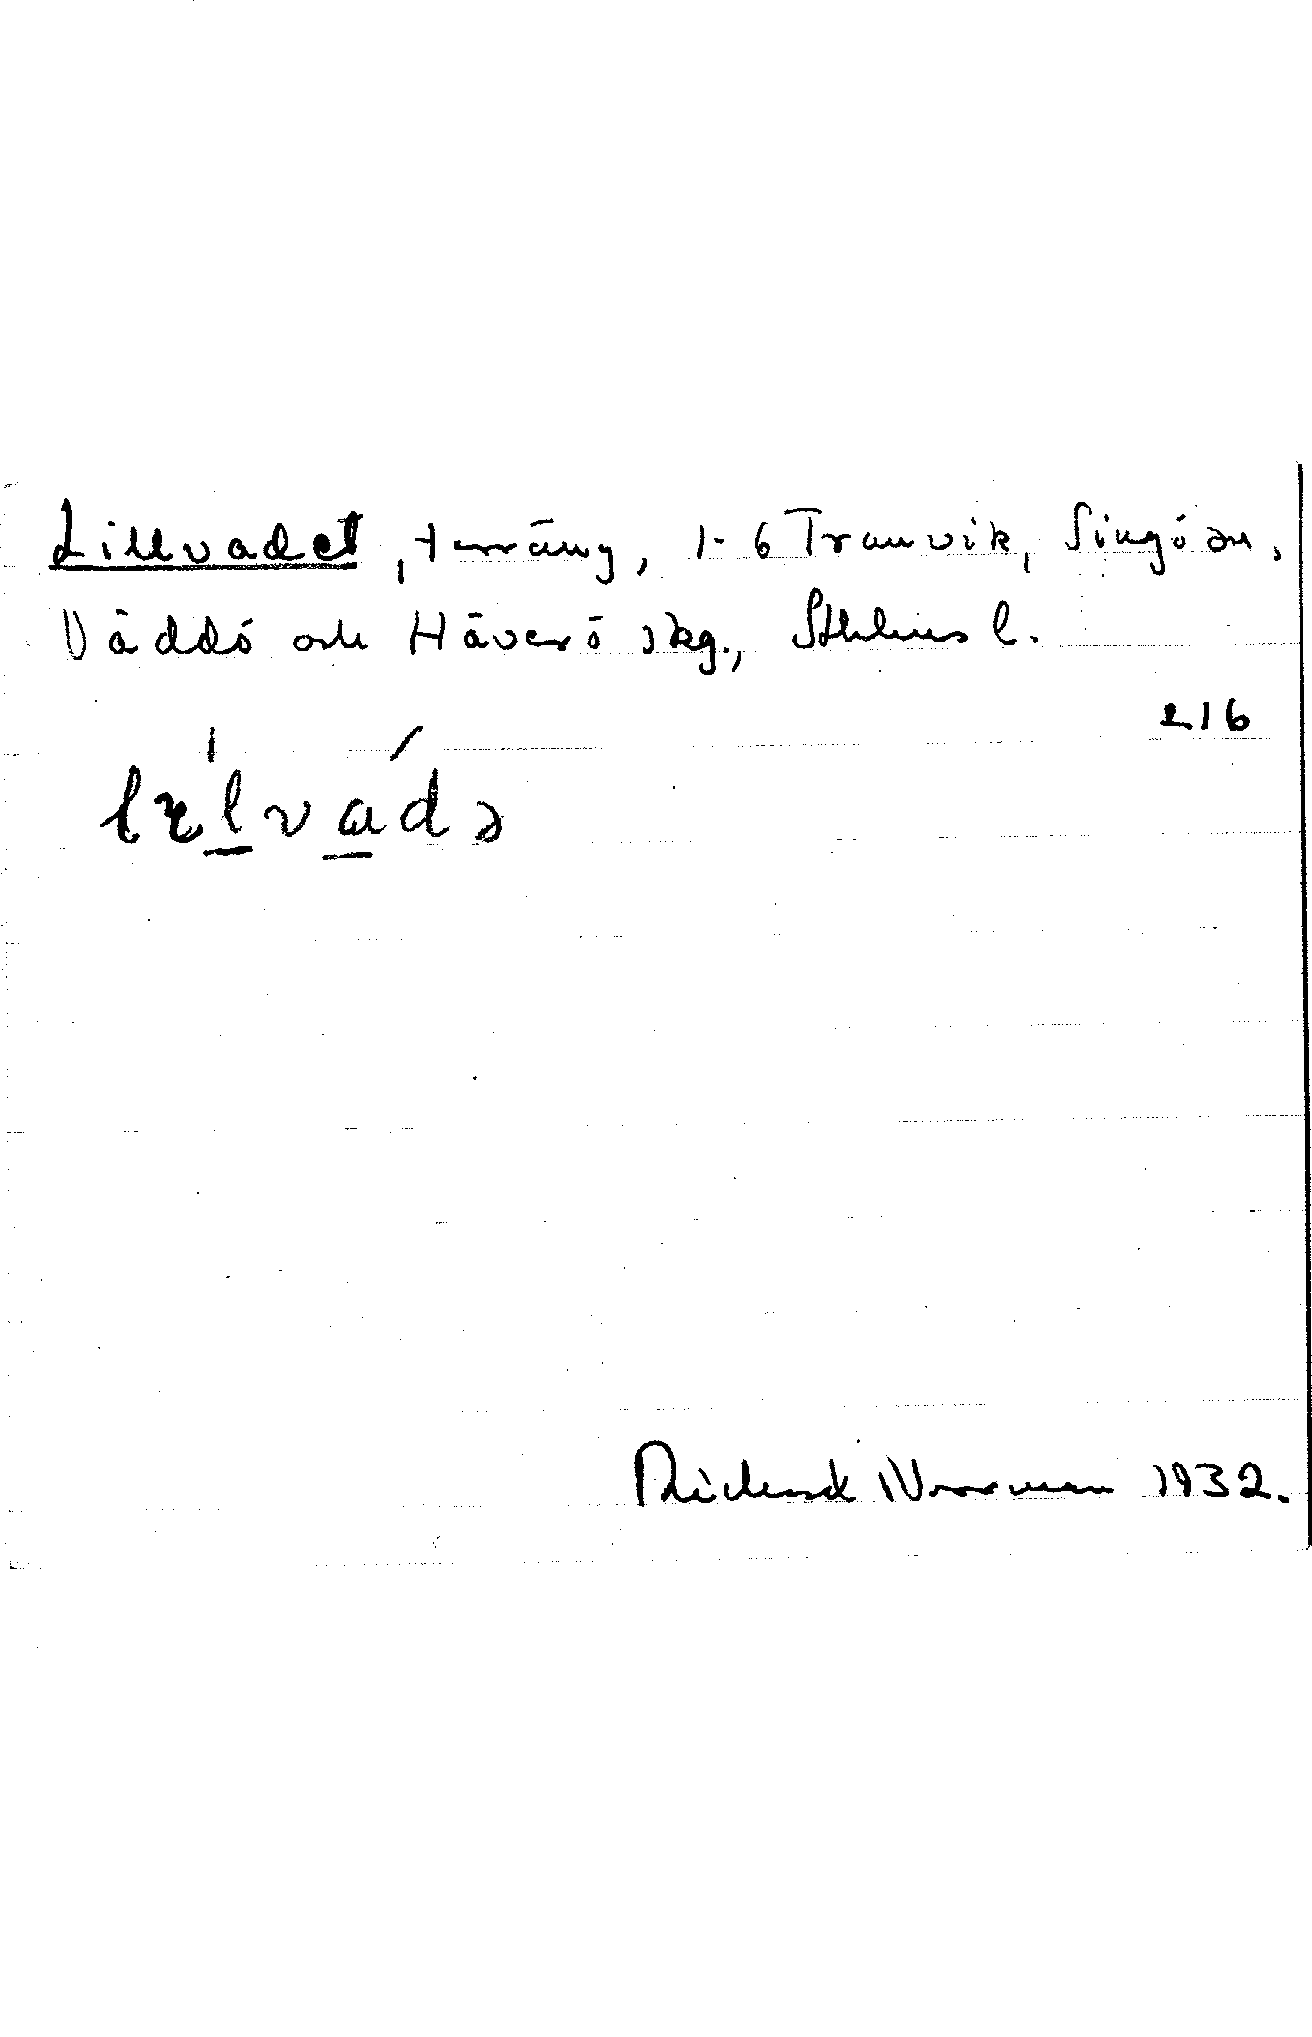 Lillvadet, terräng, 1-6 Tranvik, Singö sn,
Väddö och Häverö skg., Sthlms l.
216
lılvadə
Richard Norrman 1932.